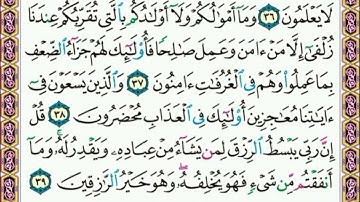 لَا يَعْلَمُونَ ٣٦ وَمَآ أَمْوَٰلُكُمْ وَلَآ أَوْلَٰدُكُم بِٱلَّتِى تُقَرِّبُكُمْ عِندَنَا
زُلْفَىٰٓ إِلَّا مَنْ ءَامَنَ وَعَمِلَ صَٰلِحًا فَأُو۟لَٰٓئِكَ لَهُمْ جَزَآءُ ٱلضِّعْفِ
بِمَا عَمِلُوا۟ وَهُمْ فِى ٱلْغُرُفَٰتِ ءَامِنُونَ ٣٧ وَٱلَّذِينَ يَسْعَوْنَ فِىٓ
ءَايَٰتِنَا مُعَٰجِزِينَ أُو۟لَٰٓئِكَ فِى ٱلْعَذَابِ مُحْضَرُونَ ٣٨ قُلْ
إِنَّ رَبِّى يَبْسُطُ ٱلرِّزْقَ لِمَن يَشَآءُ مِنْ عِبَادِهِۦ وَيَقْدِرُ لَهُۥ وَمَآ
أَنفَقْتُم مِّن شَىْءٍ فَهُوَ يُخْلِفُهُۥ وَهُوَ خَيْرُ ٱلرَّٰزِقِينَ ٣٩